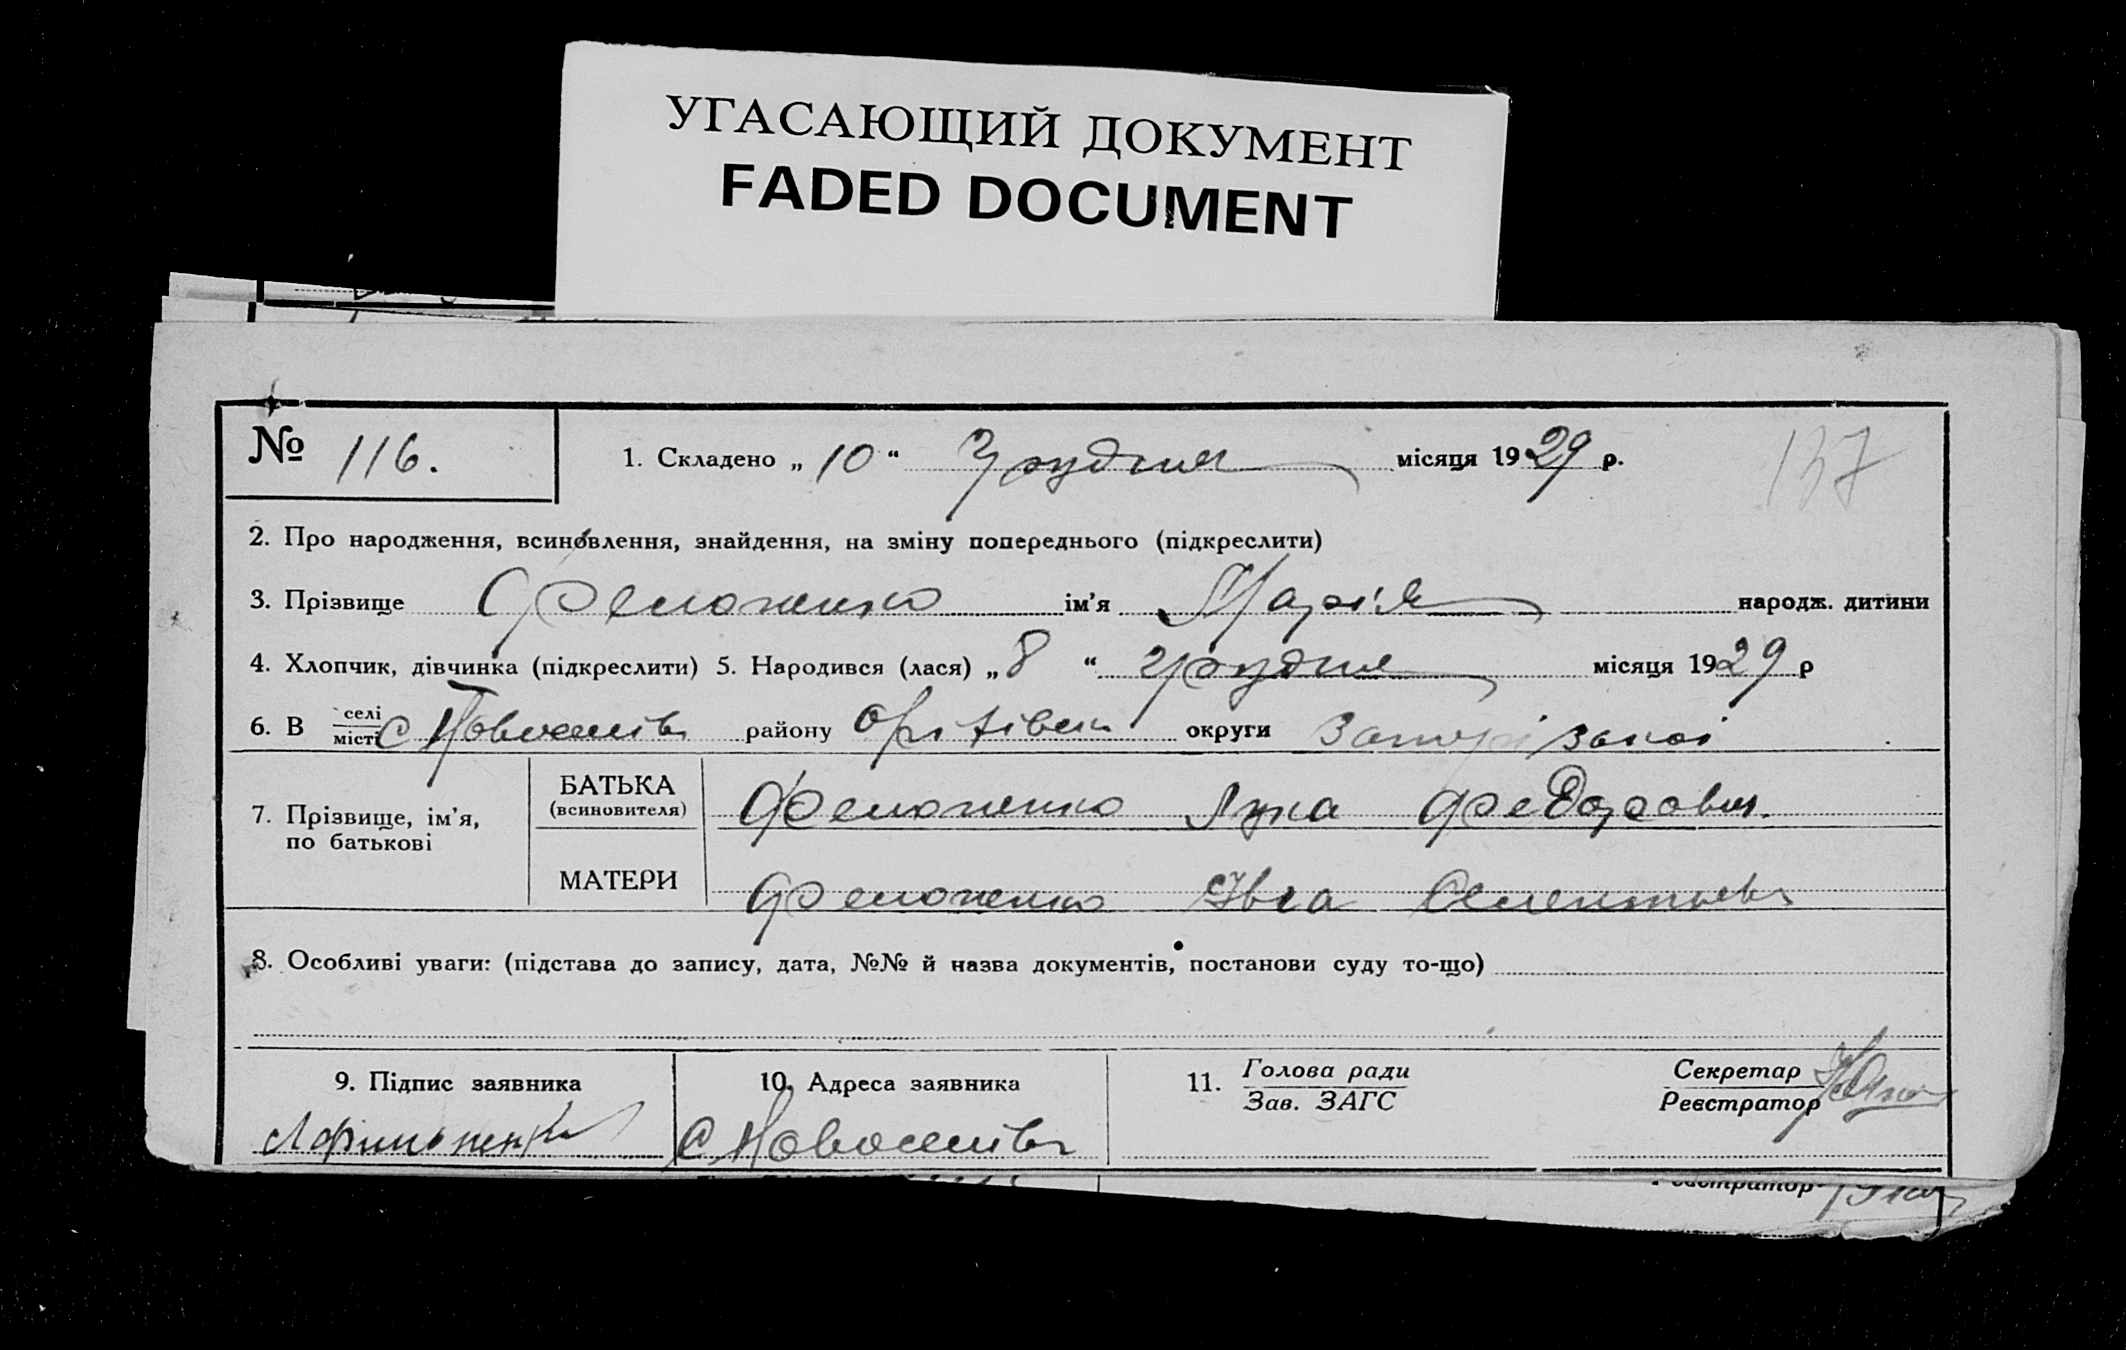 УГАСАЮЩИЙ ДОКУМЕНТ
FADED DOCUMENT
№ 116.
1. Складено „ 10 “ Грудня місяця 1929 р.
137
2. Про народження, всиновлення, знайдення, на зміну попереднього (підкреслити)
3. Прізвище Фемоненко ім'я Марія народж. дитини
4. Хлопчик, дівчинка (підкреслити) 5. Народився (лася) „ 8 “ грудня місяця 1929 р
6. В селі місті с Новоселівк району Оріхівськ округи Запорізької
7. Прізвище, ім'я, по батькові
БАТЬКА (всиновителя) Фемоненко Лука Федорович.
МАТЕРИ Фемоненко Івга
8. Особливі уваги: (підстава до запису, дата, №№ й назва документів, постанови суду то-що)
9. Підпис заявника
10. Адреса заявника
11. Голова ради Зав. ЗАГС
Секретар Реєстратор
с Новоселівк
Реєстратор